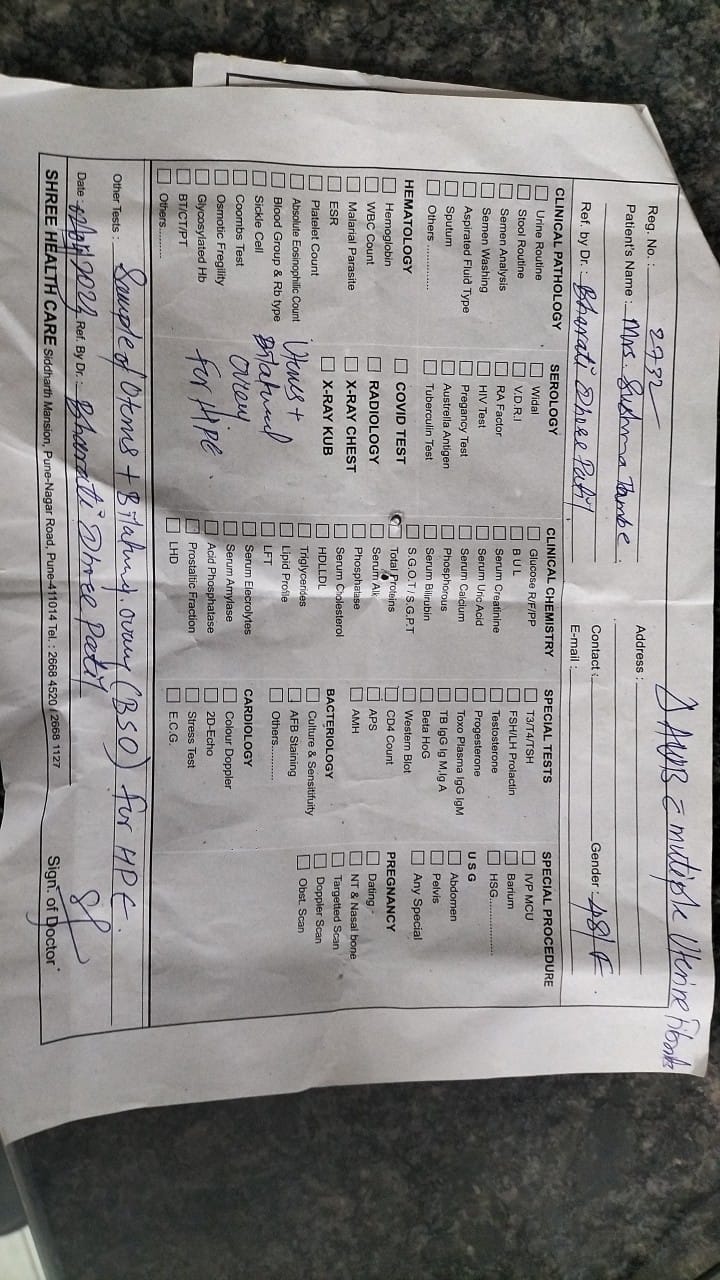 Δ AUB c multiple Uterine Fibroids
Reg. No. : 2732
Address :
Patient's Name : Mrs. Sushma Tambe.
Contact :
Gender : 48/F.
Ref. by Dr. : Bharati Dhree Patil.
E-mail :
CLINICAL PATHOLOGY
Urine Routine
Stool Routine
Semen Analysis
Semen Washing
Aspirated Fluid Type
Sputum
Others ..............
HEMATOLOGY
Hemoglobin
WBC Count
Malarial Parasite
ESR
Platelet Count
Absolute Eosinophilic Count
Blood Group & Rb type
Sickle Cell
Coombs Test
Osmotic Fregility
Glycosylated Hb
BT/CT/PT
Others........
SEROLOGY
Widal
V.D.R.I
RA Factor
HIV Test
Pregancy Test
Australia Antigen
Tuberculin Test
COVID TEST
RADIOLOGY
X-RAY CHEST
X-RAY KUB
Uterus +
Bilateral
ovary
for HPE.
CLINICAL CHEMISTRY
Glucose R/F/PP
B U L
Serum Creatinine
Serum Uric Acid
Serum Calcium
Phosphorous
Serum Bilirubin
S.G.O.T / S.G.P.T
Total Proteins
Serum Alk
Phosphatase
Serum Cholesterol
HDL/LDL
Triglycerides
Lipid Profile
LFT
Serum Elecrolytes
Serum Amylase
Acid Phosphatase
Prostaltic Fraction
LHD
SPECIAL TESTS
T3/T4/TSH
FSH/LH Prolactin
Testosterone
Progesterone
Toxo Plasma IgG IgM
TB IgG Ig M,Ig A
Beta HoG
Western Blot
CD4 Count
APS
AMH
BACTERIOLOGY
Culture & Sensitifuity
AFB Staining
Others...........
CARDIOLOGY
Colour Doppler
2D-Echo
Stress Test
E.C.G.
SPECIAL PROCEDURE
IVP MCU
Barium
HSG....................
U S G
Abdomen
Pelvis
Any Special
PREGNANCY
Dating
NT & Nasal bone
Targetted Scan
Doppler Scan
Obst. Scan
Other Tests : Sample of Uterus + Bilateral ovary (BSO) for HPE.
Date Ref. By Dr. : Bharati Dhree Patil
Sign. of Doctor
SHREE HEALTH CARE Siddharth Mansion, Pune-Nagar Road, Pune-411014 Tel. : 2668 4520 / 2668 1127